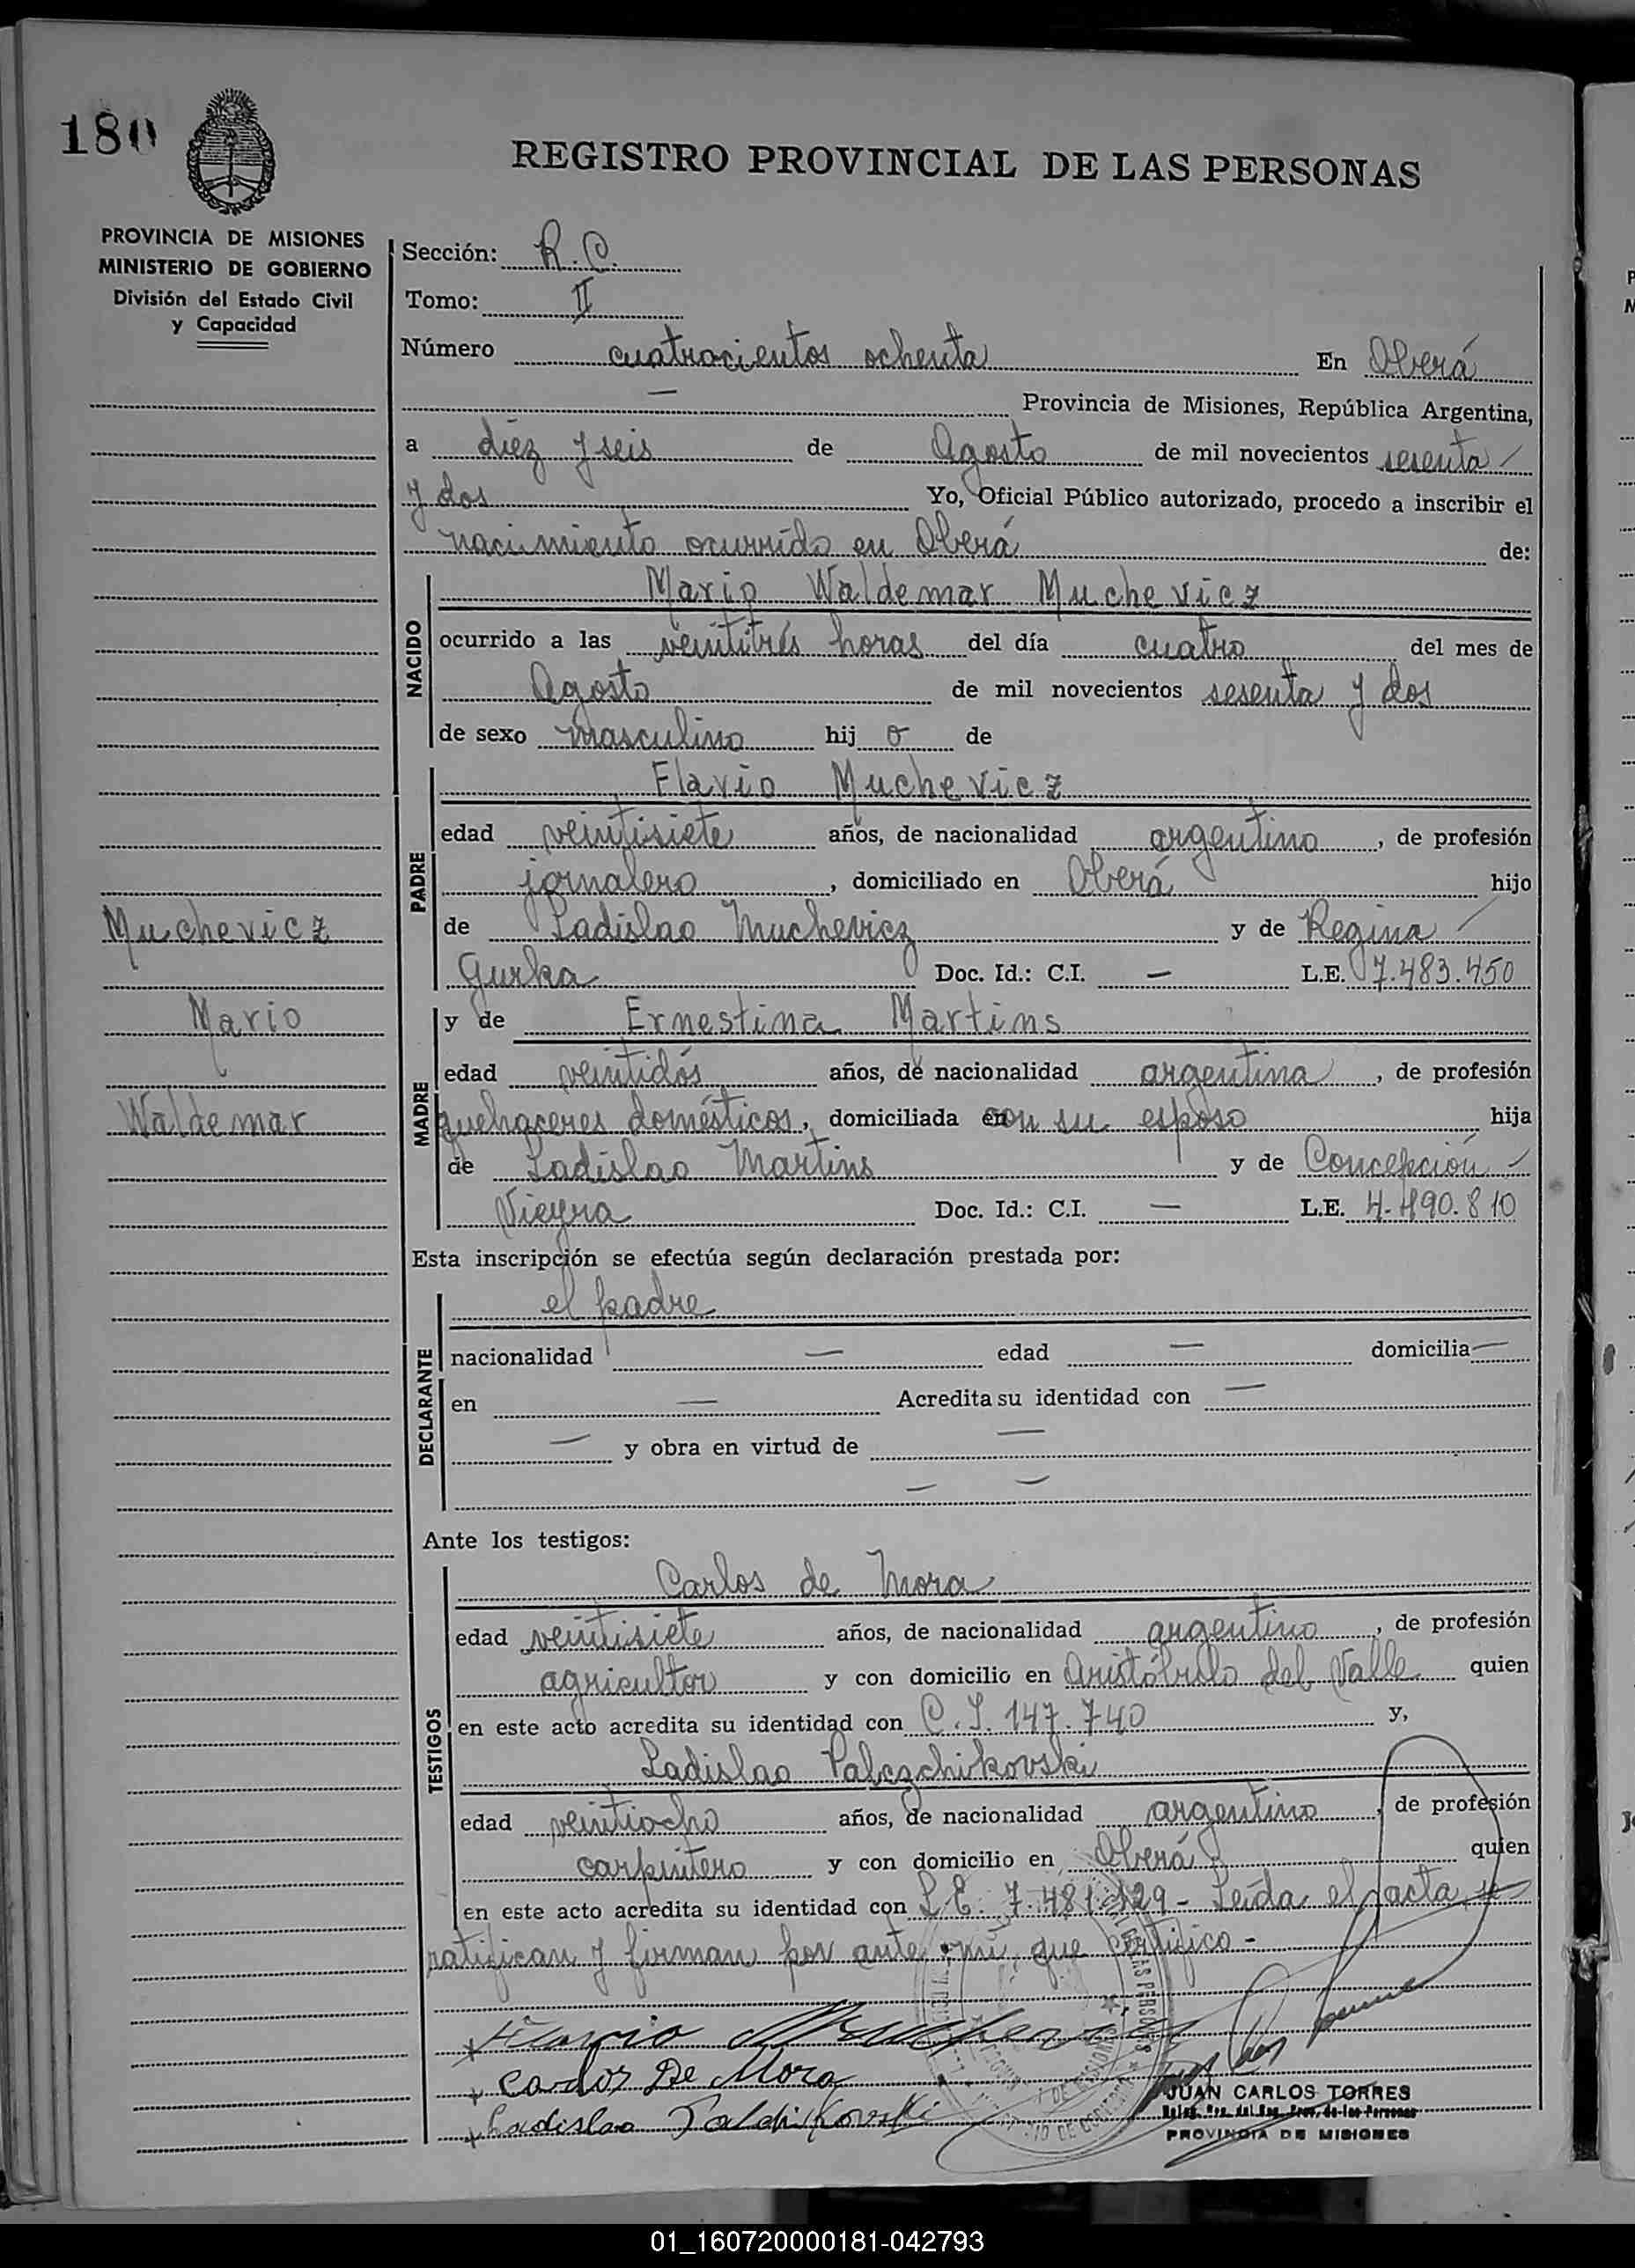 180
REGISTRO PROVINCIAL DE LAS PERSONAS
PROVINCIA DE MISIONES
MINISTERIO DE GOBIERNO
División del Estado Civil
y Capacidad
Sección: R. C.
Tomo: II
Número cuatrocientos ochenta En Oberá
— Provincia de Misiones, República Argentina,
a diez y seis de Agosto de mil novecientos sesenta
y dos Yo, Oficial Público autorizado, procedo a inscribir el
nacimiento ocurrido en Oberá de:
NACIDO
Mario Waldemar Muchevicz
ocurrido a las veintitrés horas del día cuatro del mes de
Agosto de mil novecientos sesenta y dos
de sexo masculino hij o de
PADRE
Flavio Muchevicz
edad veintisiete años, de nacionalidad argentino, de profesión
jornalero, domiciliado en Oberá hijo
de Ladislao Muchevicz y de Regina
Gurka Doc. Id.: C.I. — L.E. 7.483.450
Muchevicz
Mario
Waldemar
MADRE
y de Ernestina Martins
edad veintidós años, de nacionalidad argentina, de profesión
quehaceres domésticos, domiciliada en con su esposo hija
de Ladislao Martins y de Concepción
Vieyra Doc. Id.: C.I. — L.E. 4.490.810
Esta inscripción se efectúa según declaración prestada por:
DECLARANTE
el padre
nacionalidad — edad — domicilia —
en — Acredita su identidad con —
— y obra en virtud de —
— —
Ante los testigos:
TESTIGOS
Carlos de Mora
edad veintisiete años, de nacionalidad argentino, de profesión
agricultor y con domicilio en Aristóbulo del Valle quien
en este acto acredita su identidad con C.I. 147.740 y,
Ladislao Palczchikovski
edad veintiocho años, de nacionalidad argentino, de profesión
carpintero y con domicilio en Oberá quien
en este acto acredita su identidad con L.E. 7.481.129 - Leída el acta
ratifican y firman por ante mí que certifico -
Flavio Muchevicz
Carlos De Mora
Ladislao
JUAN CARLOS TORRES
PROVINCIA DE MISIONES
01_160720000181-042793